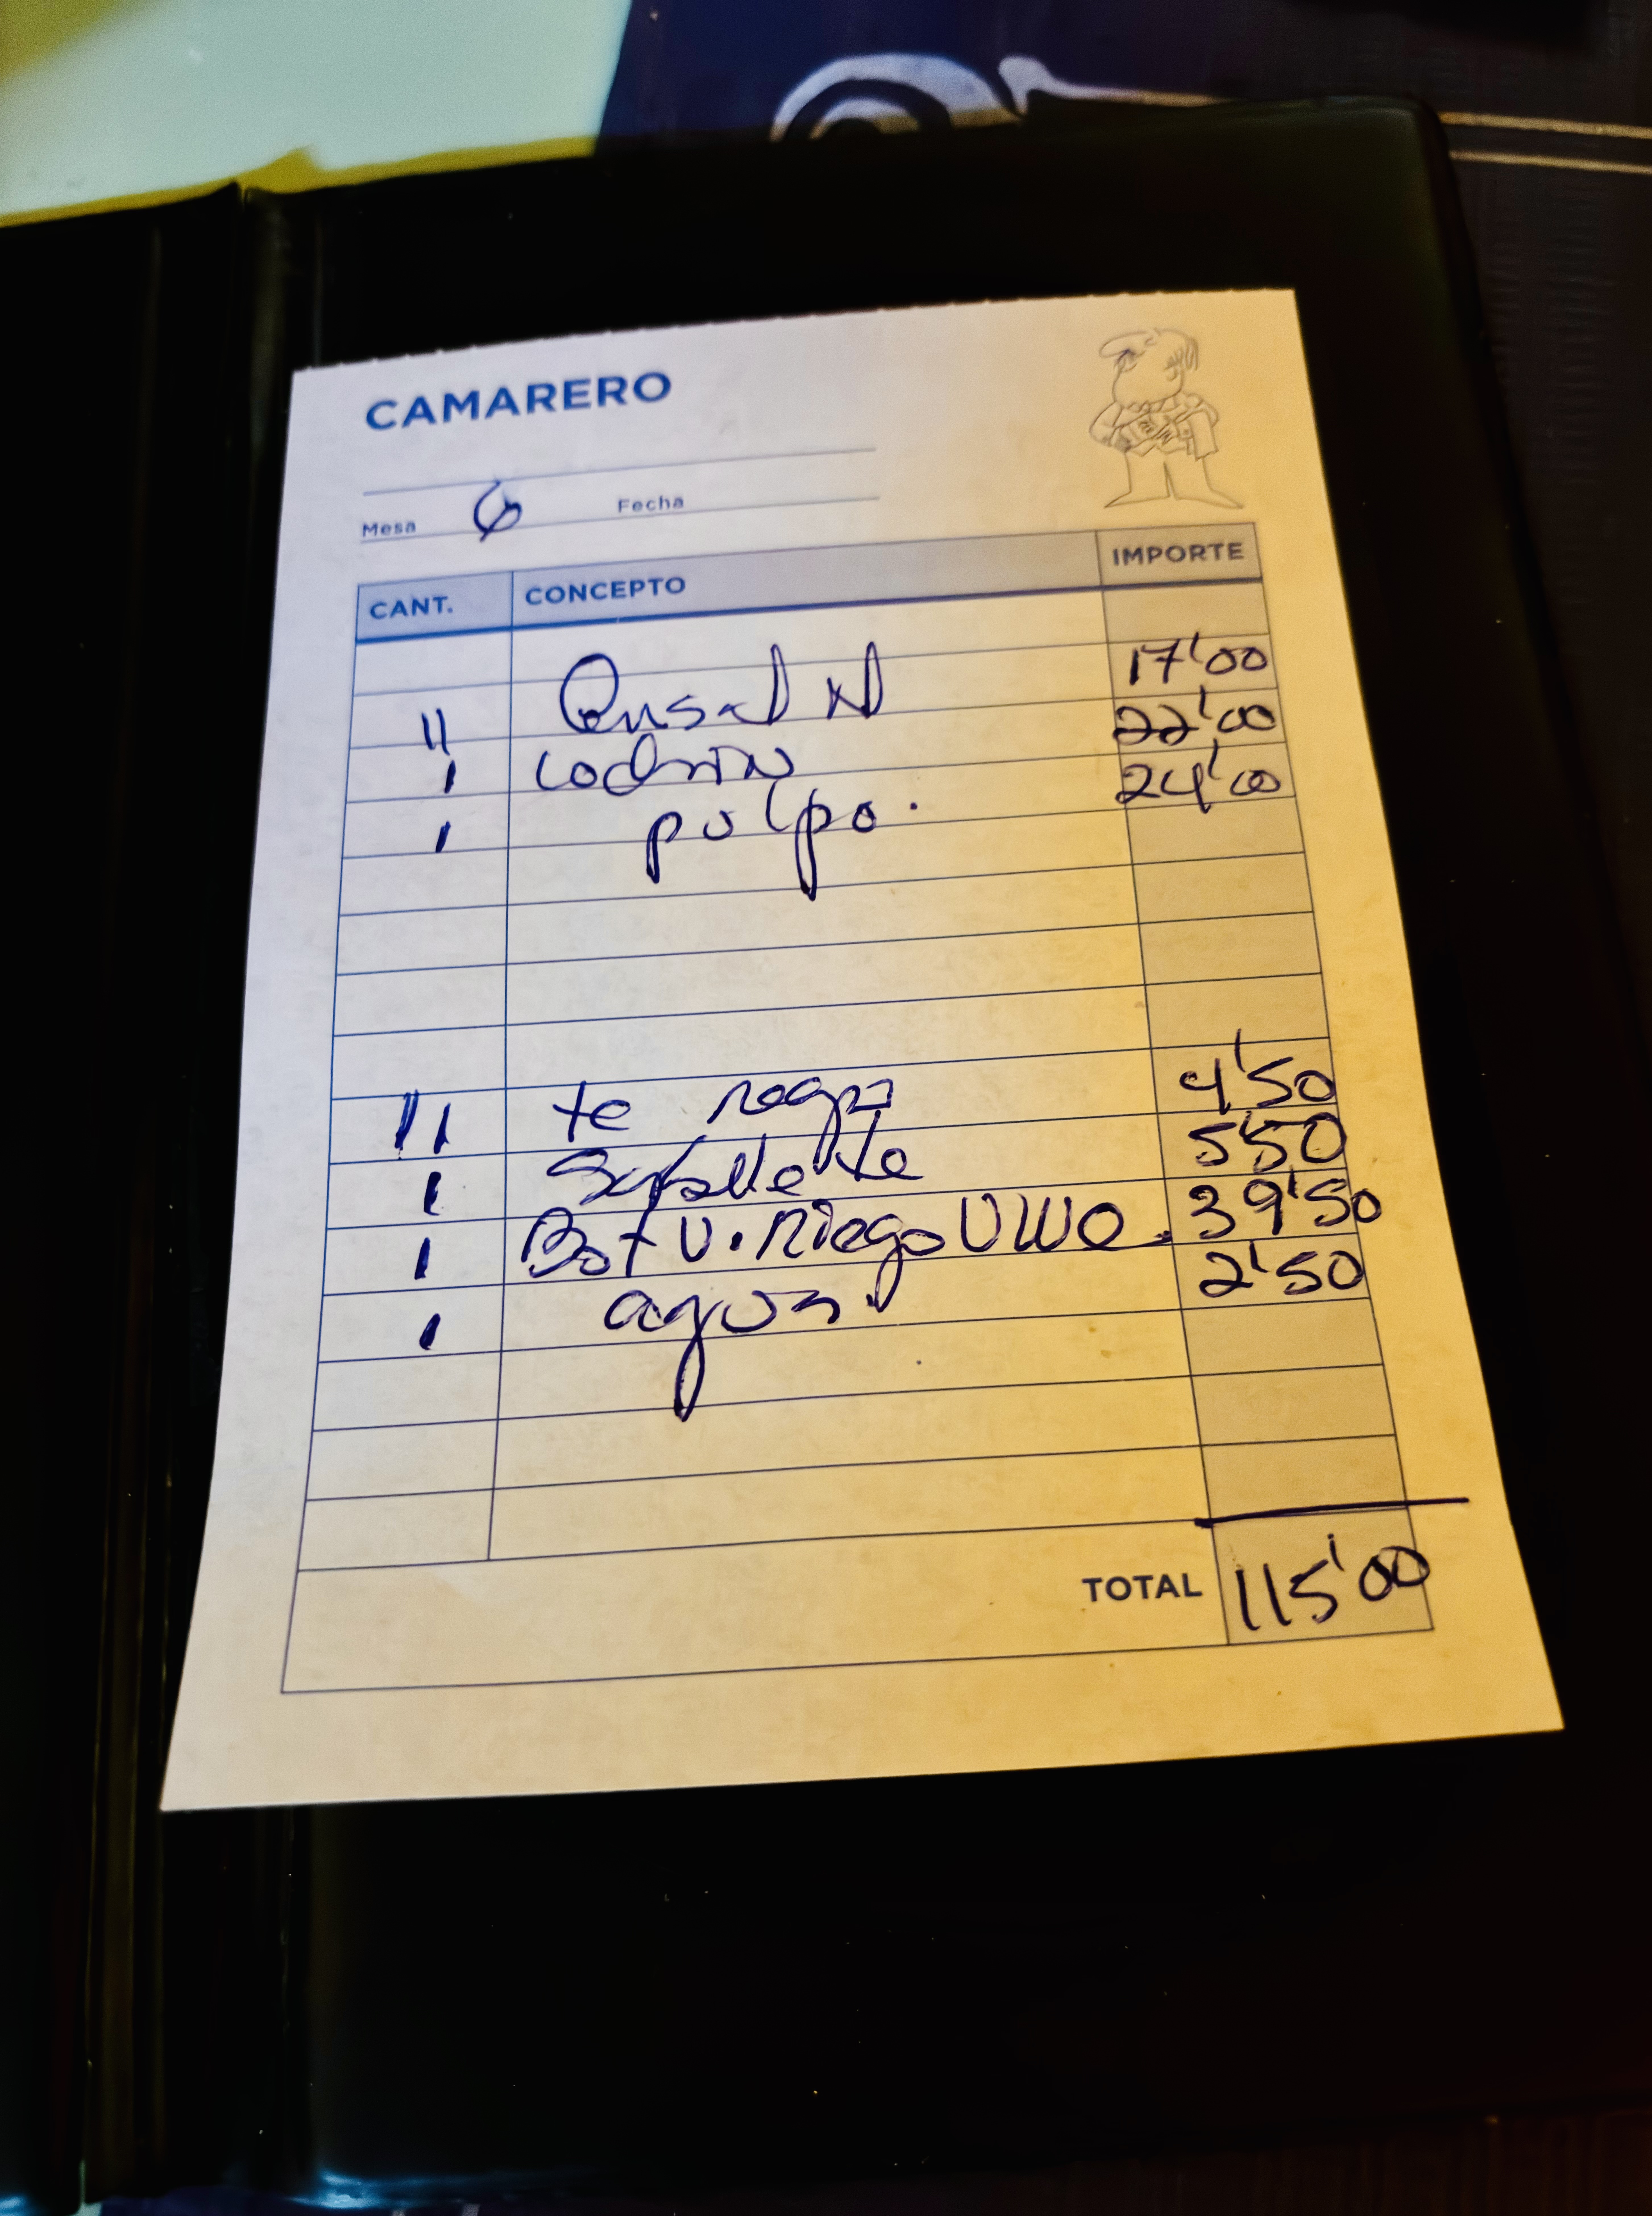 CAMARERO
Mesa 6 Fecha
CANT. CONCEPTO IMPORTE
11 Ensal N 17'00
1 Cochin 22'00
1 pulpo. 24'00
11 te negro 4'50
1 te 5'50
1 Bot V. Riego UWO. 39'50
1 agua. 2'50
TOTAL 115'00